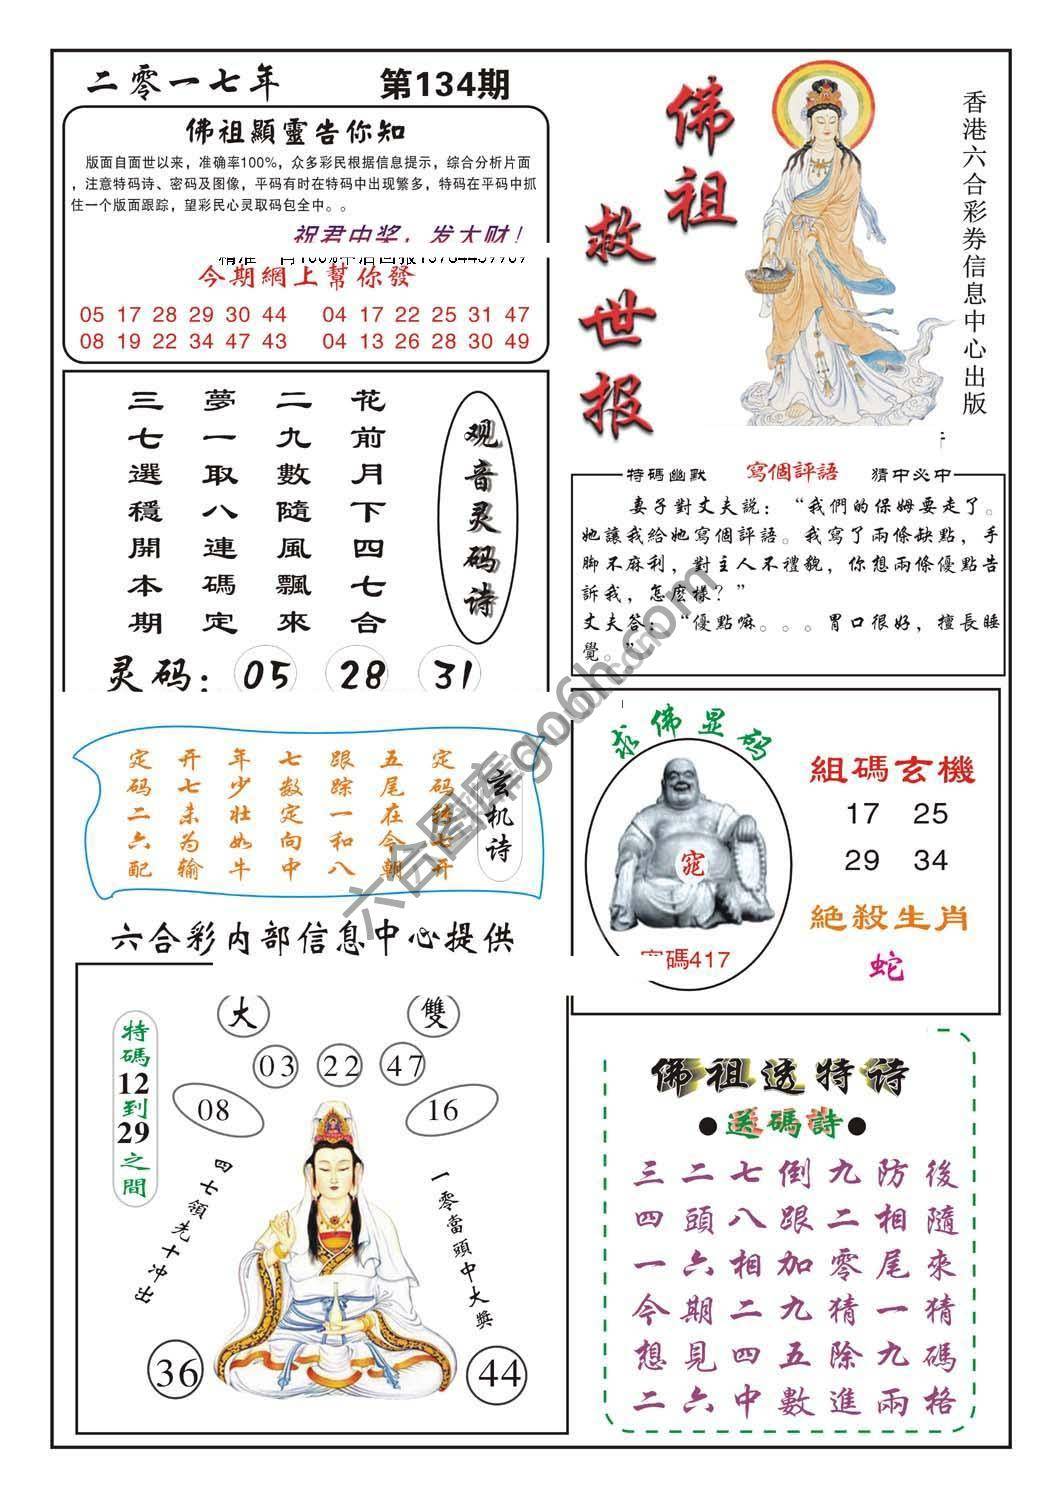 二零一七年 第134期
佛祖顯靈告你知
版面自面世以来，准确率100%，众多彩民根据信息提示，综合分析片面
，注意特码诗、密码及图像，平码有时在特码中出现繁多，特码在平码中抓
住一个版面跟踪，望彩民心灵取码包全中。。
祝君中奖，发大财！
今期網上幫你發
05 17 28 29 30 44 04 17 22 25 31 47
08 19 22 34 47 43 04 13 26 28 30 49
佛祖救世报
香港六合彩券信息中心出版
观音灵码诗
花前月下四七合
二九數隨風飄來
夢一取八連碼定
三七選穩開本期
灵码：05 28 31
特碼幽默 寫個評語 猜中必中
妻子對丈夫説：“我們的保姆要走了。
她讓我給她寫個評語。我寫了兩條缺點，手
脚不麻利，對主人不禮貌，你想兩條優點告
訴我，怎麽樣？”
丈夫答：“優點嘛。。。胃口很好，擅長睡
覺。”
玄机诗
定码转七开
五尾在今朝
跟踪一和八
七数定向中
年少壮如牛
开七未为输
定码二六配
六合彩内部信息中心提供
求佛显码
窕
碼417
組碼玄機
17 25
29 34
絶殺生肖
蛇
大 雙
03 22 47
08 16
特碼12到29之間
四七領先十冲出
一零當頭中大獎
36 44
佛祖透特诗
●送碼詩●
三二七倒九防後
四頭八跟二相隨
一六相加零尾來
今期二九猜一猜
想見四五除九碼
二六中數進兩格
六合图库go6h.com